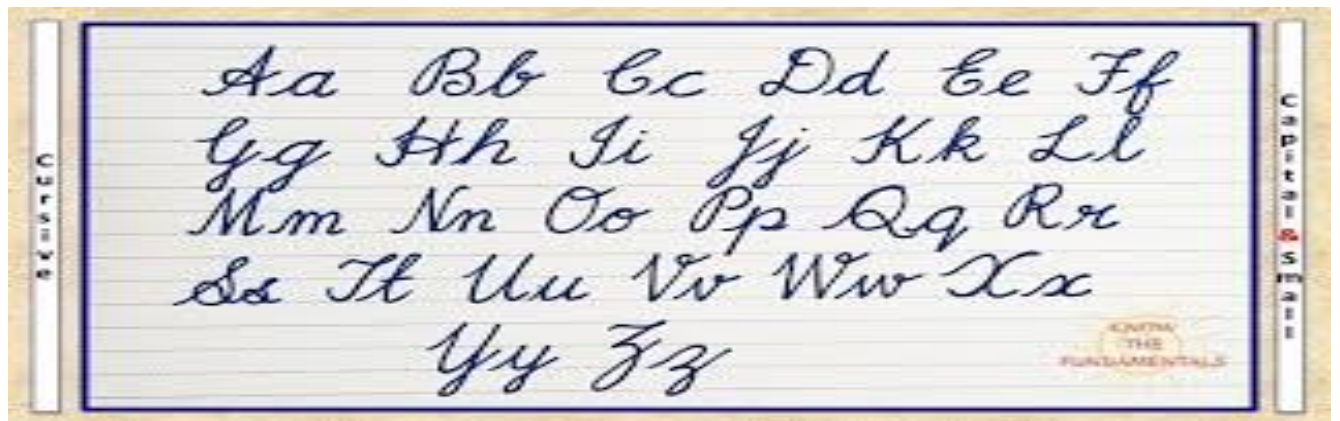 Cursive
Aa Bb Cc Dd Ee Ff
Gg Hh Ii Jj Kk Ll
Mm Nn Oo Pp Qq Rr
Ss Tt Uu Vv Ww Xx
Yy Zz
KNOW
THE
FUNDAMENTALS
Capital & Small